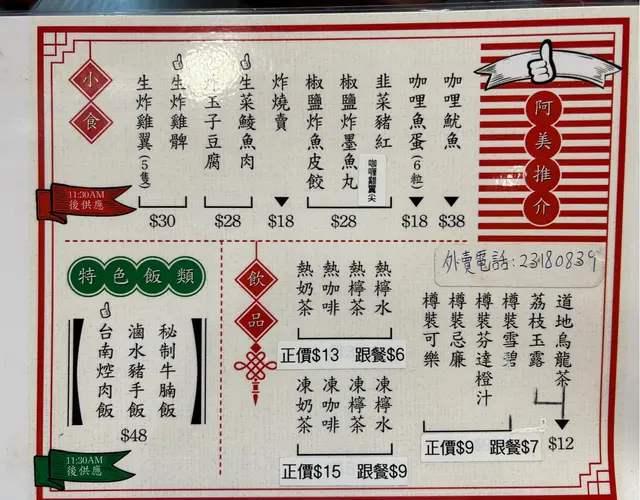 阿美推介
咖哩魷魚
$38
咖哩魚蛋(6粒)
$18
韭菜豬紅
咖喱雞翼尖
椒鹽炸墨魚丸
椒鹽炸魚皮餃
$28
炸燒賣
$18
生菜鯪魚肉
玉子豆腐
$28
生炸雞髀
生炸雞翼(5隻)
$30
小食
11:30AM
後供應
外賣電話:23180839
特色飯類
秘制牛腩飯
滷水豬手飯
台南焢肉飯
$48
11:30AM
後供應
飲品
熱檸水
熱檸茶
熱咖啡
熱奶茶
正價$13 跟餐$6
凍檸水
凍檸茶
凍咖啡
凍奶茶
正價$15 跟餐$9
道地烏龍茶
荔枝玉露
$12
樽裝雪碧
樽裝芬達橙汁
樽裝忌廉
樽裝可樂
正價$9 跟餐$7